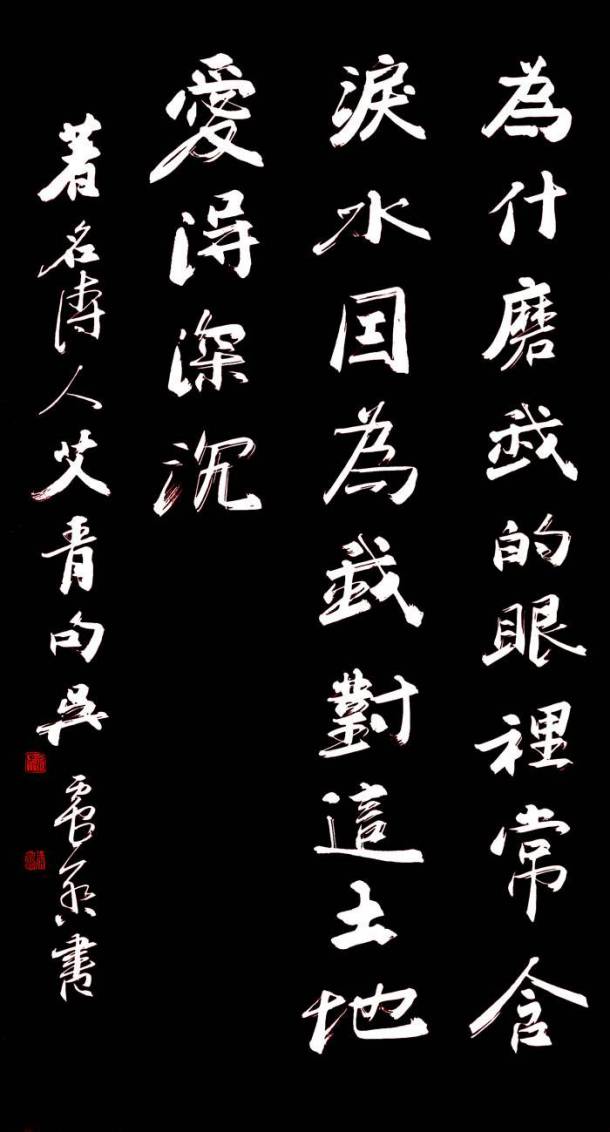 為什磨我的眼裡常含
淚水因為我對這土地
愛得深沉
著名詩人艾青句吳書